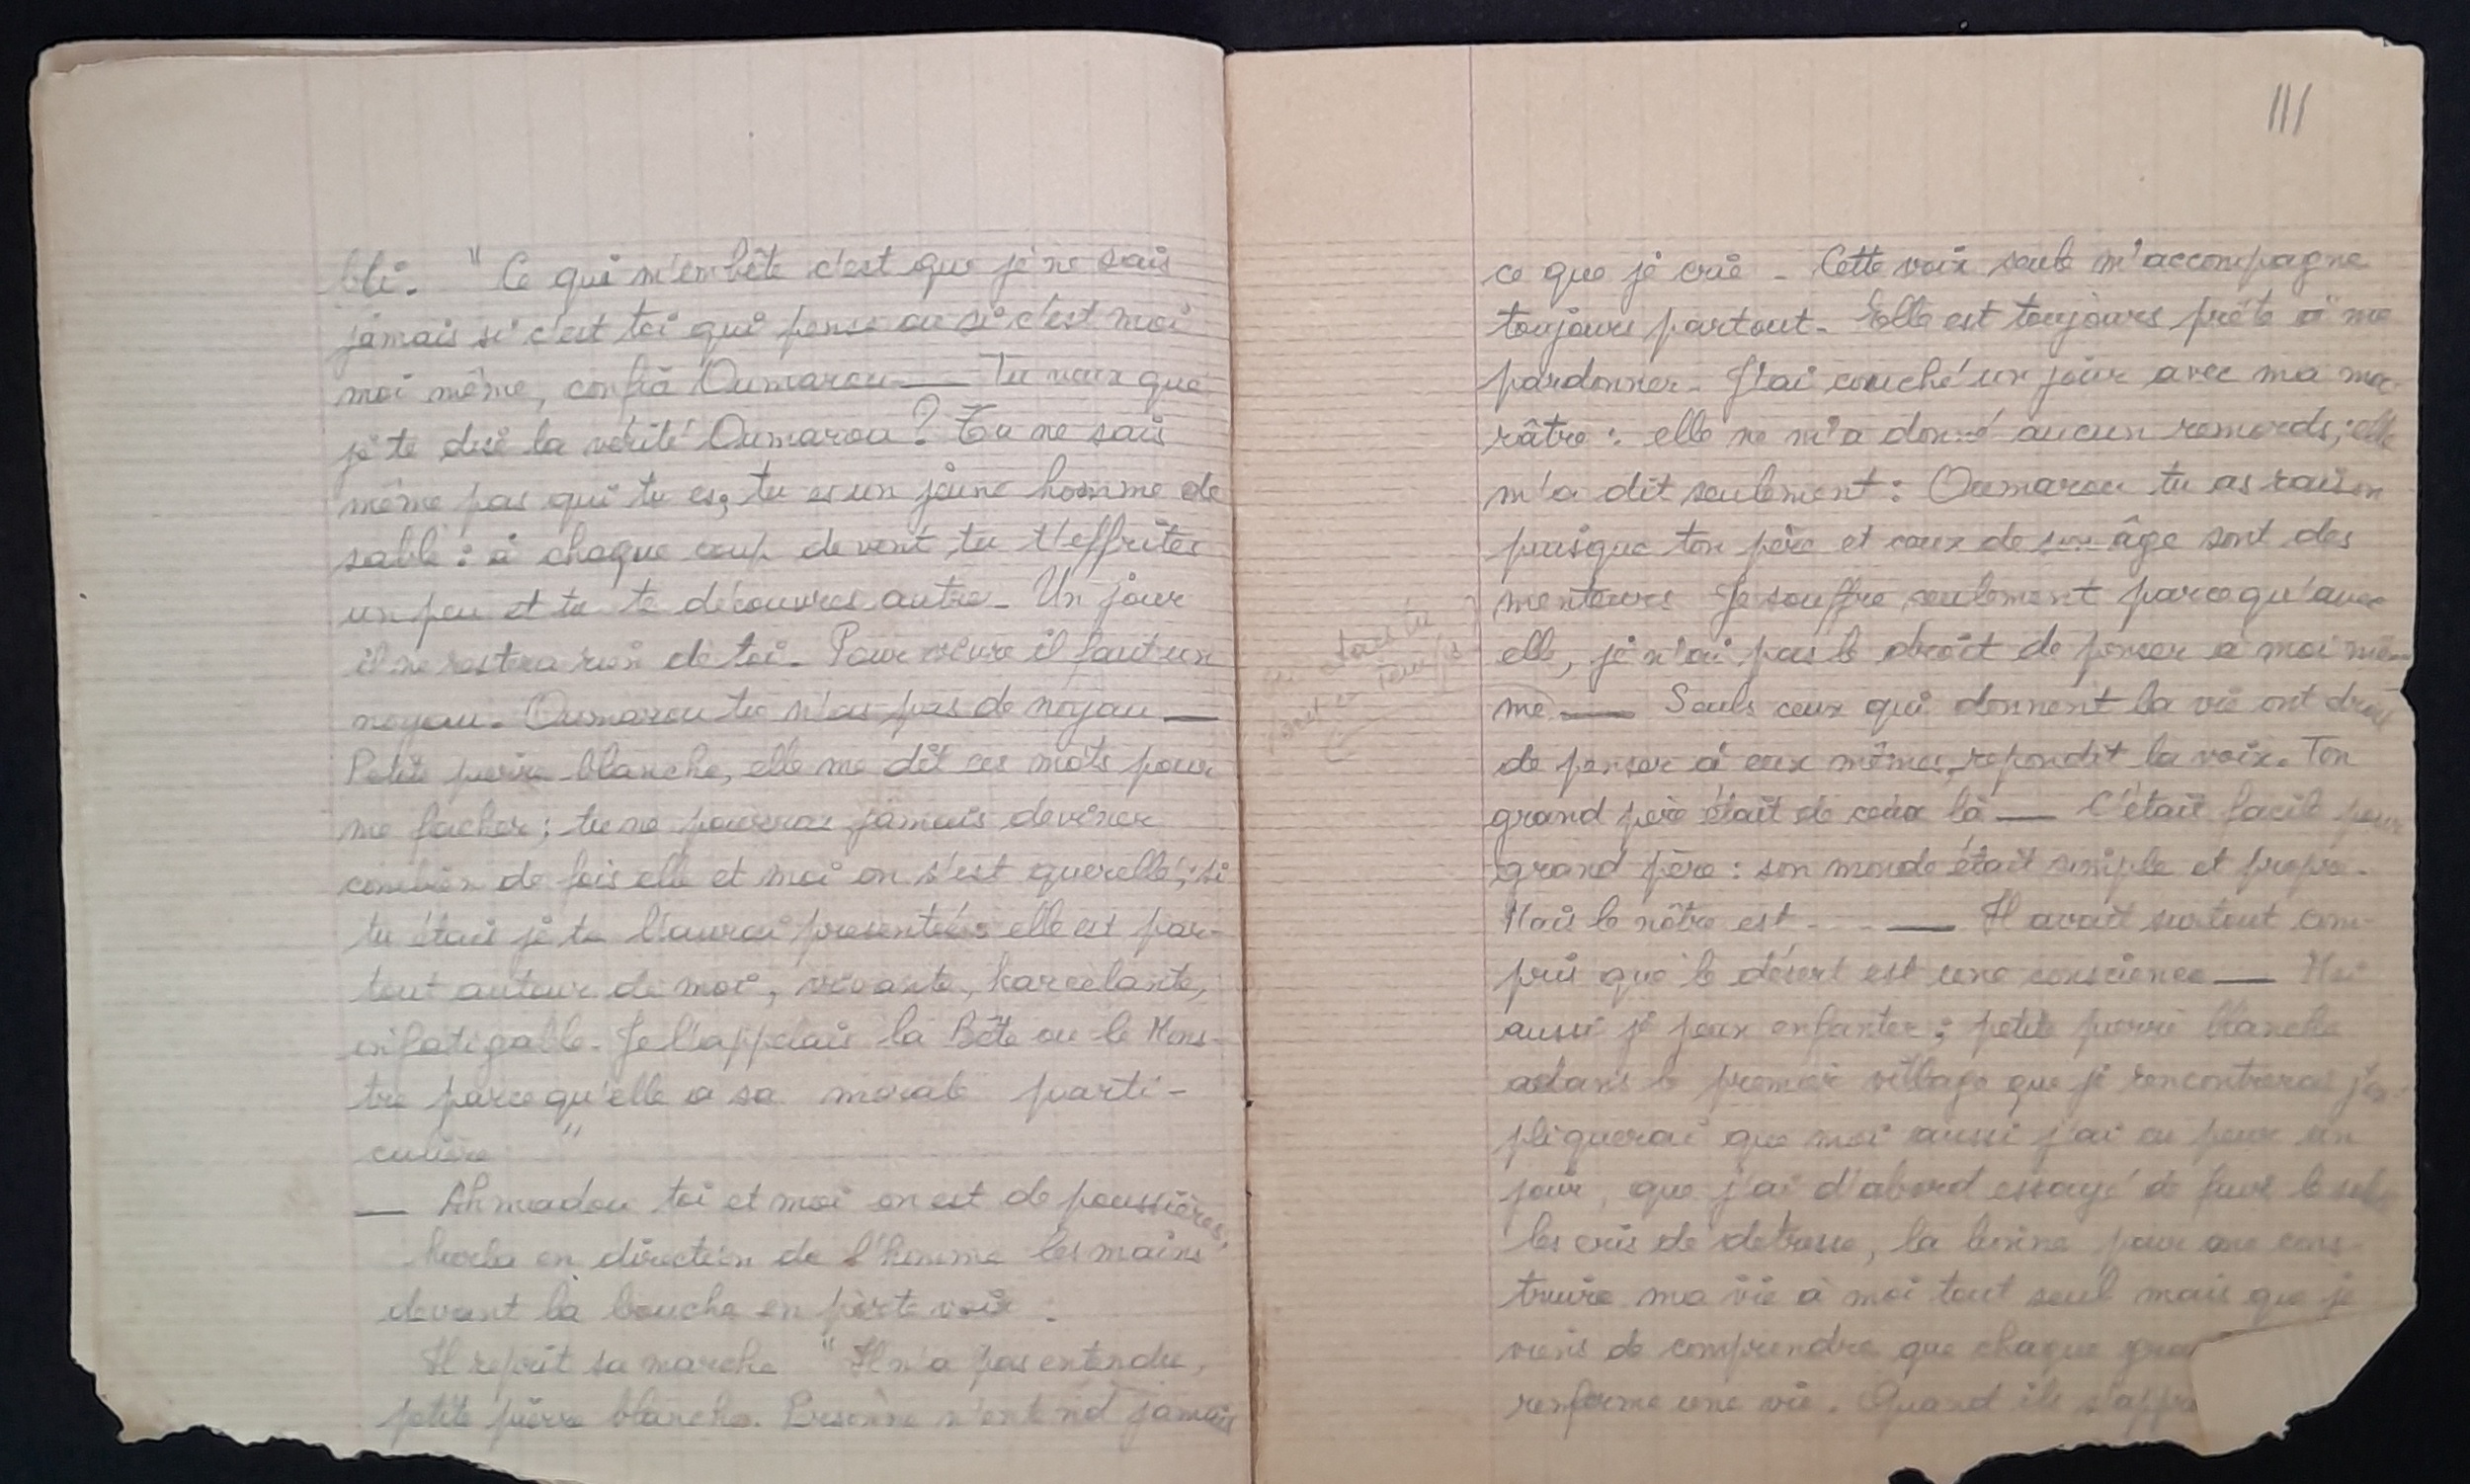 bli. " Ce qui m'embête c'est que je ne sais
jamais si c'est toi qui pense ou si c'est moi
moi même, confia Oumarou — Tu veux que
je te dise la vérité Oumarou ? Tu ne sais
même pas qui tu es, tu es un jeune homme de
sable : à chaque coup de vent tu t'effrites
un peu et tu te découvres autre. Un jour
il ne restera rien de toi. Pour vivre il faut un
noyau. Oumarou tu n'as pas de noyau —
Petite pierre blanche, elle me dit ces mots pour
me facher ; tu ne pourras jamais deviner
combien de fois elle et moi on s'est querellé ; si
tu étais je te l'aurai presentée elle est par-
tout autour de moi, vivante, harcelante,
infatigable. Je l'appelais la Bête ou le Mons-
tre parcequ'elle a sa morale parti-
culière "
— Ahmadou toi et moi on est de poussières,
hurla en direction de l'homme les mains
devant la bouche en porte voix.
Il reprit sa marche " Il n'a pas entendu,
petite pierre blanche. Personne n'entend jamais
111
ce que je crie - Cette voix seule m'accompagne
toujours partout. Elle est toujours prête à me
pardonner. J'ai couché un jour avec ma ma-
râtre : elle ne m'a donné aucun remords ; elle
m'a dit seulement : Oumarou tu as raison
puisque ton père et ceux de son âge sont des
menteurs Je souffre seulement parcequ'avec
elle, je n'ai pas le droit de penser à moi mê-
me — Seuls ceux qui donnent la vie ont droit
de penser à eux mêmes, repondit la voix. Ton
grand père était de ceux là — C'était facile pour
grand père : son monde était simple et propre.
Mais le nôtre est .... — Il avait surtout com-
pris que le désert est une conscience — Moi
aussi je peux enfanter ; petite pierre blanche
dans le premier village que je rencontrerai j'ex-
pliquerai que moi aussi j'ai eu peur un
jour, que j'ai d'abord essayé de fuir le
les cris de detresse, la pour me cons-
truire ma vie à moi tout seul mais que je
viens de comprendre que chaque
renferme une vie. Quand ils